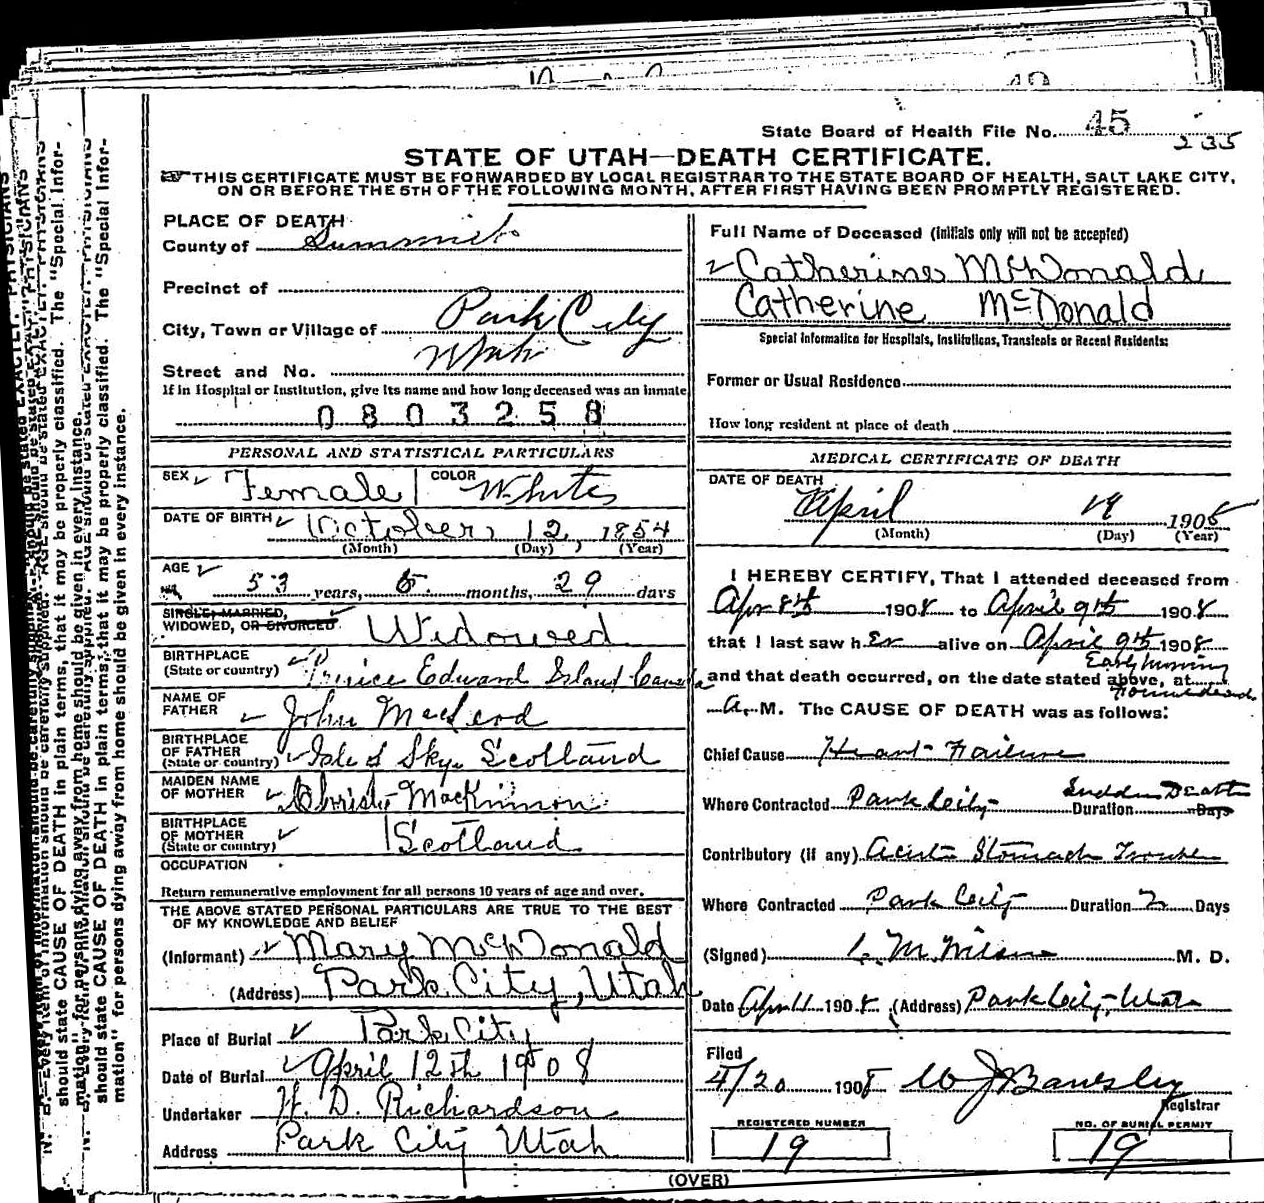 State Board of Health File No. 45
235
STATE OF UTAH—DEATH CERTIFICATE.
THIS CERTIFICATE MUST BE FORWARDED BY LOCAL REGISTRAR TO THE STATE BOARD OF HEALTH, SALT LAKE CITY,
ON OR BEFORE THE 5TH OF THE FOLLOWING MONTH, AFTER FIRST HAVING BEEN PROMPTLY REGISTERED.
PLACE OF DEATH
County of Summit
Precinct of
City, Town or Village of Park City
Utah
Street and No.
If in Hospital or Institution, give its name and how long deceased was an inmate
0803258
PERSONAL AND STATISTICAL PARTICULARS
SEX Female COLOR White
DATE OF BIRTH October 12, 1854
(Month) (Day) (Year)
AGE
53 years, 5 months, 29 days
SINGLE, MARRIED,
WIDOWED, OR DIVORCED Widowed
BIRTHPLACE
(State or country) Prince Edward Island Canada
NAME OF
FATHER John MacLeod
BIRTHPLACE
OF FATHER
(State or country) Isle of Skye Scotland
MAIDEN NAME
OF MOTHER Christe MacKinnon
BIRTHPLACE
OF MOTHER
(State or country) Scotland
OCCUPATION
Return remunerative employment for all persons 10 years of age and over.
THE ABOVE STATED PERSONAL PARTICULARS ARE TRUE TO THE BEST
OF MY KNOWLEDGE AND BELIEF
(Informant) Mary McDonald
(Address) Park City, Utah
Place of Burial Park City
Date of Burial April 12th 1908
Undertaker H. D. Richardson
Address Park City Utah
Full Name of Deceased (Initials only will not be accepted)
Catherine McDonald
Catherine McDonald
Special Information for Hospitals, Institutions, Transients or Recent Residents:
Former or Usual Residence
How long resident at place of death
MEDICAL CERTIFICATE OF DEATH
DATE OF DEATH
April 1908
(Month) (Day) (Year)
I HEREBY CERTIFY, That I attended deceased from
Apr 8th 1908 to April 9th 1908
that I last saw her alive on April 9th 1908
Early Morning
and that death occurred, on the date stated above, at
Found dead
A. M. The CAUSE OF DEATH was as follows:
Chief Cause Heart Failure
Sudden Death
Where Contracted Park City Duration Days
Contributory (if any) Acute Stomach Trouble
Where Contracted Park City Duration 2 Days
(Signed) M. Wilson M. D.
Date Apr 11 1908 (Address) Park City, Utah
Filed
4/20 1908
Registrar
REGISTERED NUMBER
19
NO. OF BURIAL PERMIT
19
(OVER)
should state CAUSE OF DEATH in plain terms, that it may be properly classified. The "Special Infor-
mation" for persons dying away from home should be given in every instance.